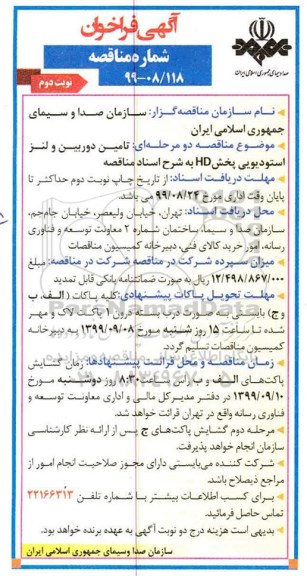 آگهی فراخوان
شماره مناقصه
۹۹-۰۸/۱۱۸
نوبت دوم
صدا و سیمای جمهوری اسلامی ایران
نام سازمان مناقصه‌گزار: سازمان صدا و سیمای
جمهوری اسلامی ایران
موضوع مناقصه دو مرحله‌ای: تامین دوربین و لنز
استودیویی پخش HD به شرح اسناد مناقصه
مهلت دریافت اسناد: از تاریخ چاپ نوبت دوم حداکثر تا
پایان وقت اداری مورخ ۹۹/۰۸/۲۴ می باشد.
محل دریافت اسناد: تهران، خیابان ولیعصر، خیابان جام‌جم،
سازمان صدا و سیما، ساختمان شماره ۲ معاونت توسعه و فناوری
رسانه، امور خرید کالای فنی، دبیرخانه کمیسیون مناقصات
میزان سپرده شرکت در مناقصه شرکت در مناقصه: مبلغ
۱۲/۴۹۸/۸۶۷/۰۰۰ ریال به صورت ضمانتنامه بانکی قابل تمدید
مهلت تحویل پاکات پیشنهادی: کلیه پاکات (الف، ب
و ج) بایستی در درون ۱ پاکت لاک و مهر
شده تا ساعت ۱۵ روز شنبه مورخ ۱۳۹۹/۰۹/۰۸ به دبیرخانه
کمیسیون مناقصات تسلیم گردد.
زمان مناقصه و محل قرائت پیشنهادها: زمان گشایش
پاکت‌های الف و ب رأس ساعت ۸:۳۰ روز دوشنبه مورخ
۱۳۹۹/۰۹/۱۰ در دفتر مدیرکل مالی و اداری معاونت توسعه و
فناوری رسانه واقع در تهران قرائت خواهد شد.
مرحله دوم گشایش پاکت‌های ج پس از ارائه نظر کارشناسی
سازمان انجام خواهد پذیرفت.
شرکت کننده می‌بایستی دارای مجوز صلاحیت انجام امور از
مراجع ذیصلاح باشد.
برای کسب اطلاعات بیشتر با شماره تلفن ۲۲۱۶۶۳۱۳
تماس حاصل فرمائید.
بدیهی است هزینه درج دو نوبت آگهی به عهده برنده خواهد بود.
سازمان صدا وسیمای جمهوری اسلامی ایران